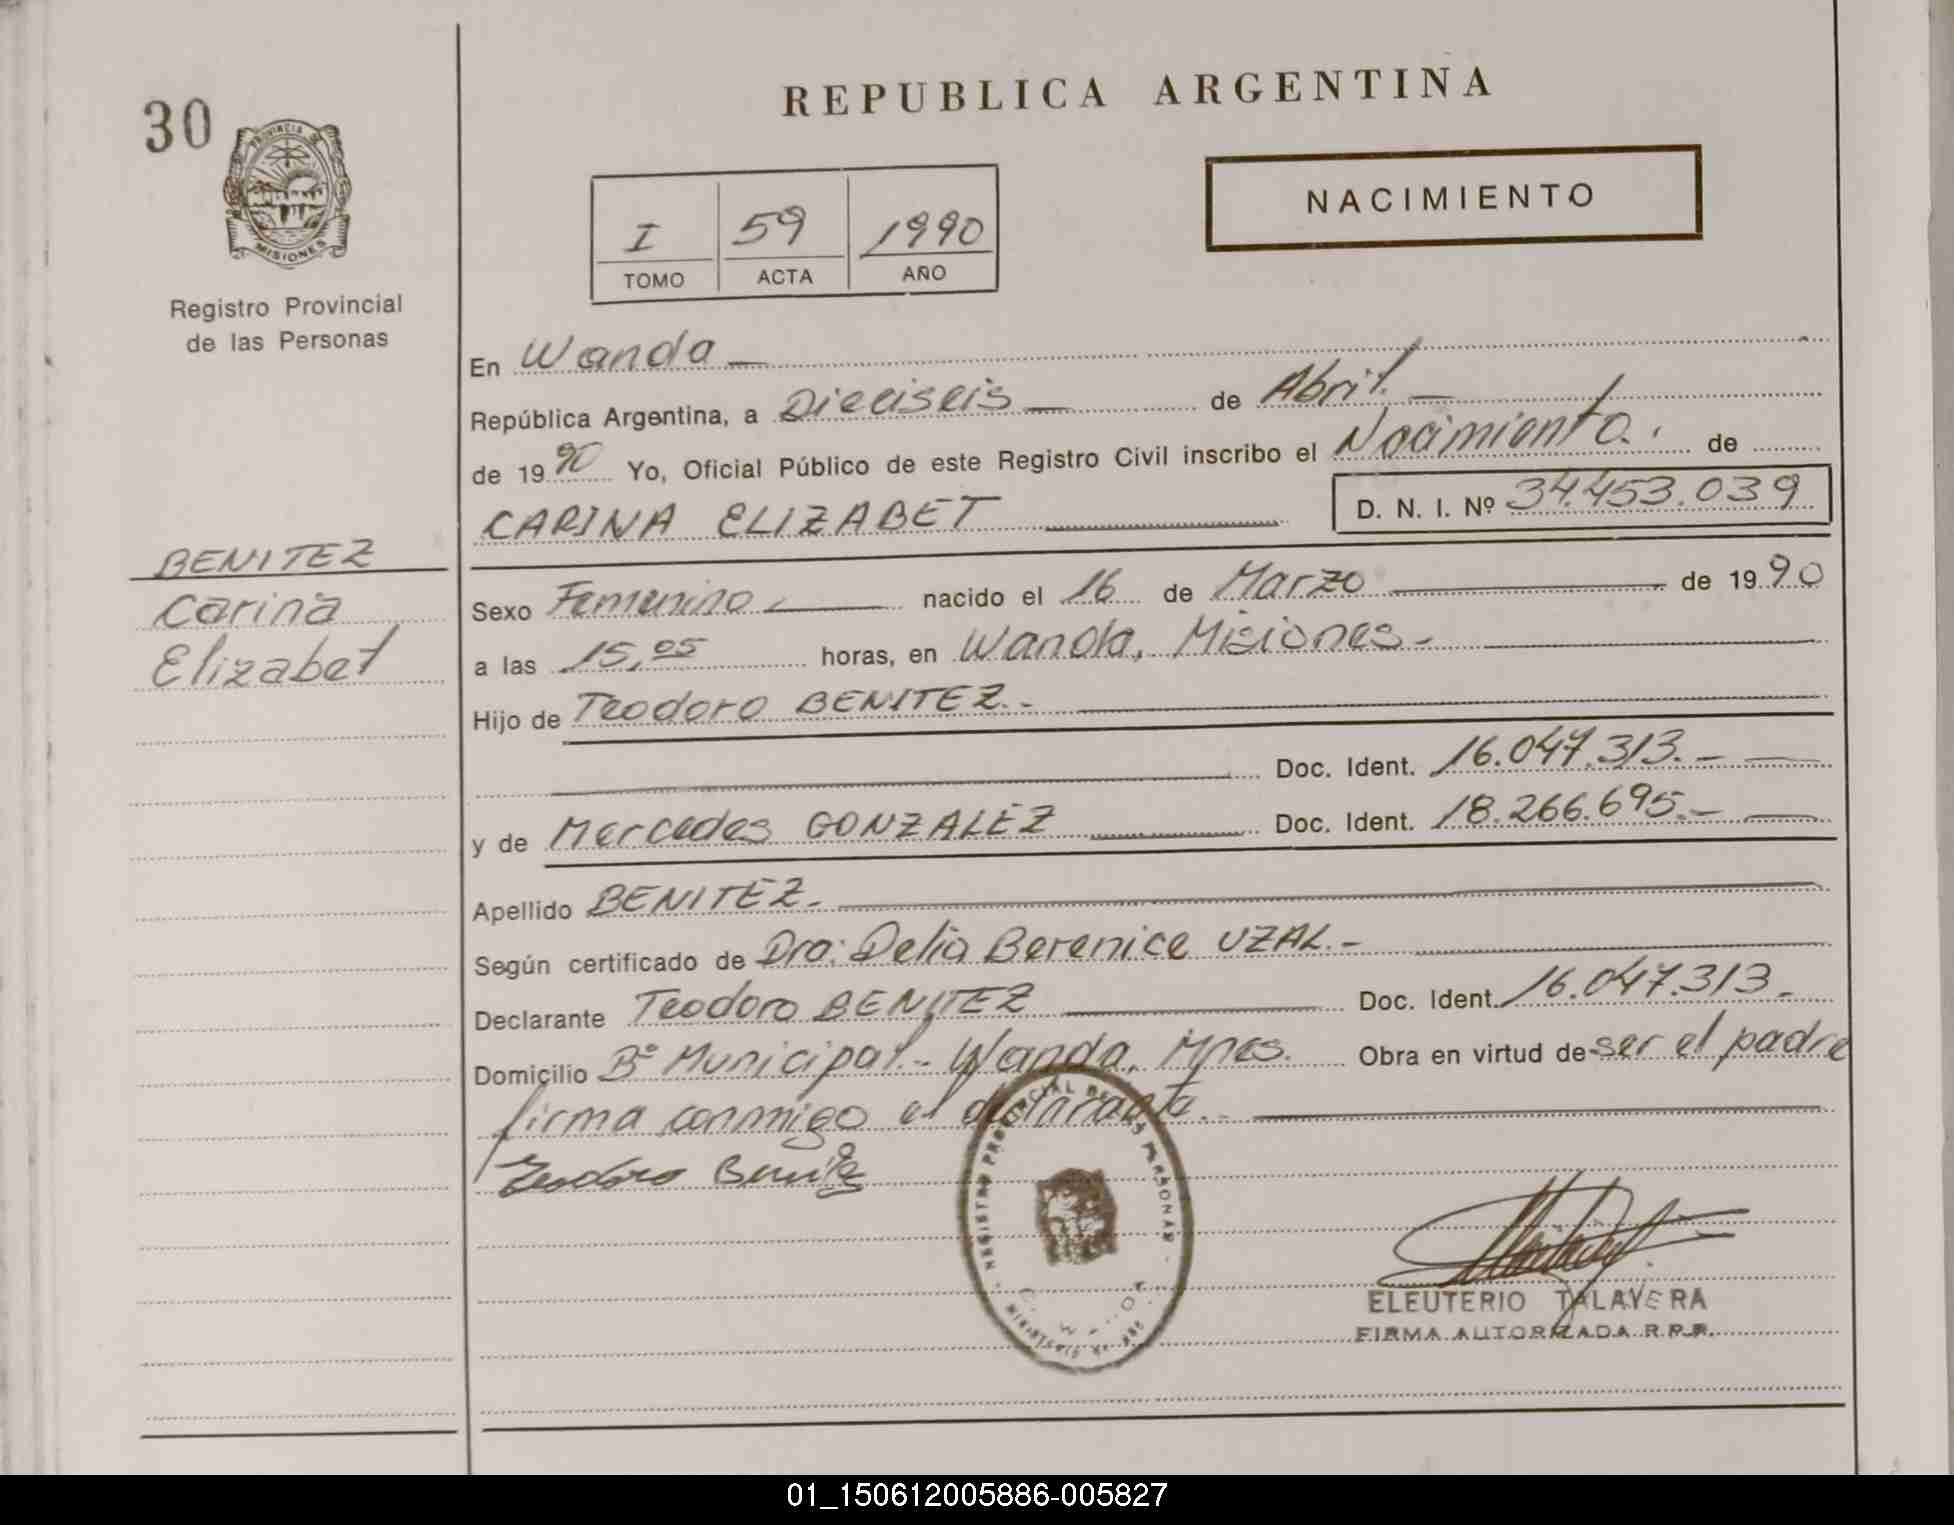 REPUBLICA ARGENTINA
30
PROVINCIA DE
MISIONES
Registro Provincial
de las Personas
NACIMIENTO
I 59 1990
TOMO ACTA AÑO
En Wanda
República Argentina, a Dieciseis de Abril.
de 1990 Yo, Oficial Público de este Registro Civil inscribo el Nacimiento. de
CARINA ELIZABET D. N. I. Nº 34.453.039
BENITEZ
Carina
Elizabet
Sexo Femenino nacido el 16 de Marzo de 1990
a las 15,05 horas, en Wanda, Misiones.-
Hijo de Teodoro BENITEZ.-
Doc. Ident. 16.047.313.-
y de Mercedes GONZALEZ Doc. Ident. 18.266.695.-
Apellido BENITEZ.
Según certificado de Dra: Delia Berenice UZAL.-
Declarante Teodoro BENITEZ Doc. Ident. 16.047.313.
Domicilio Bº Municipal.- Wanda, Mnes. Obra en virtud de ser el padre
firma conmigo el declarante.
Teodoro Benitez
REGISTRO PROVINCIAL DE LAS PERSONAS
ELEUTERIO TALAVERA
FIRMA AUTORIZADA R.P.P.
01_150612005886-005827